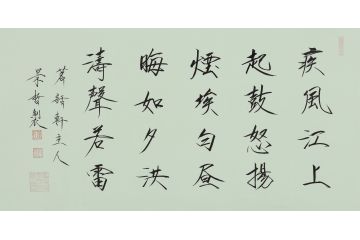 疾風江上
起鼓怒揚
煙埃勻昼
晦如夕洪
濤聲若雷
菶䅵軒主人
景哲製